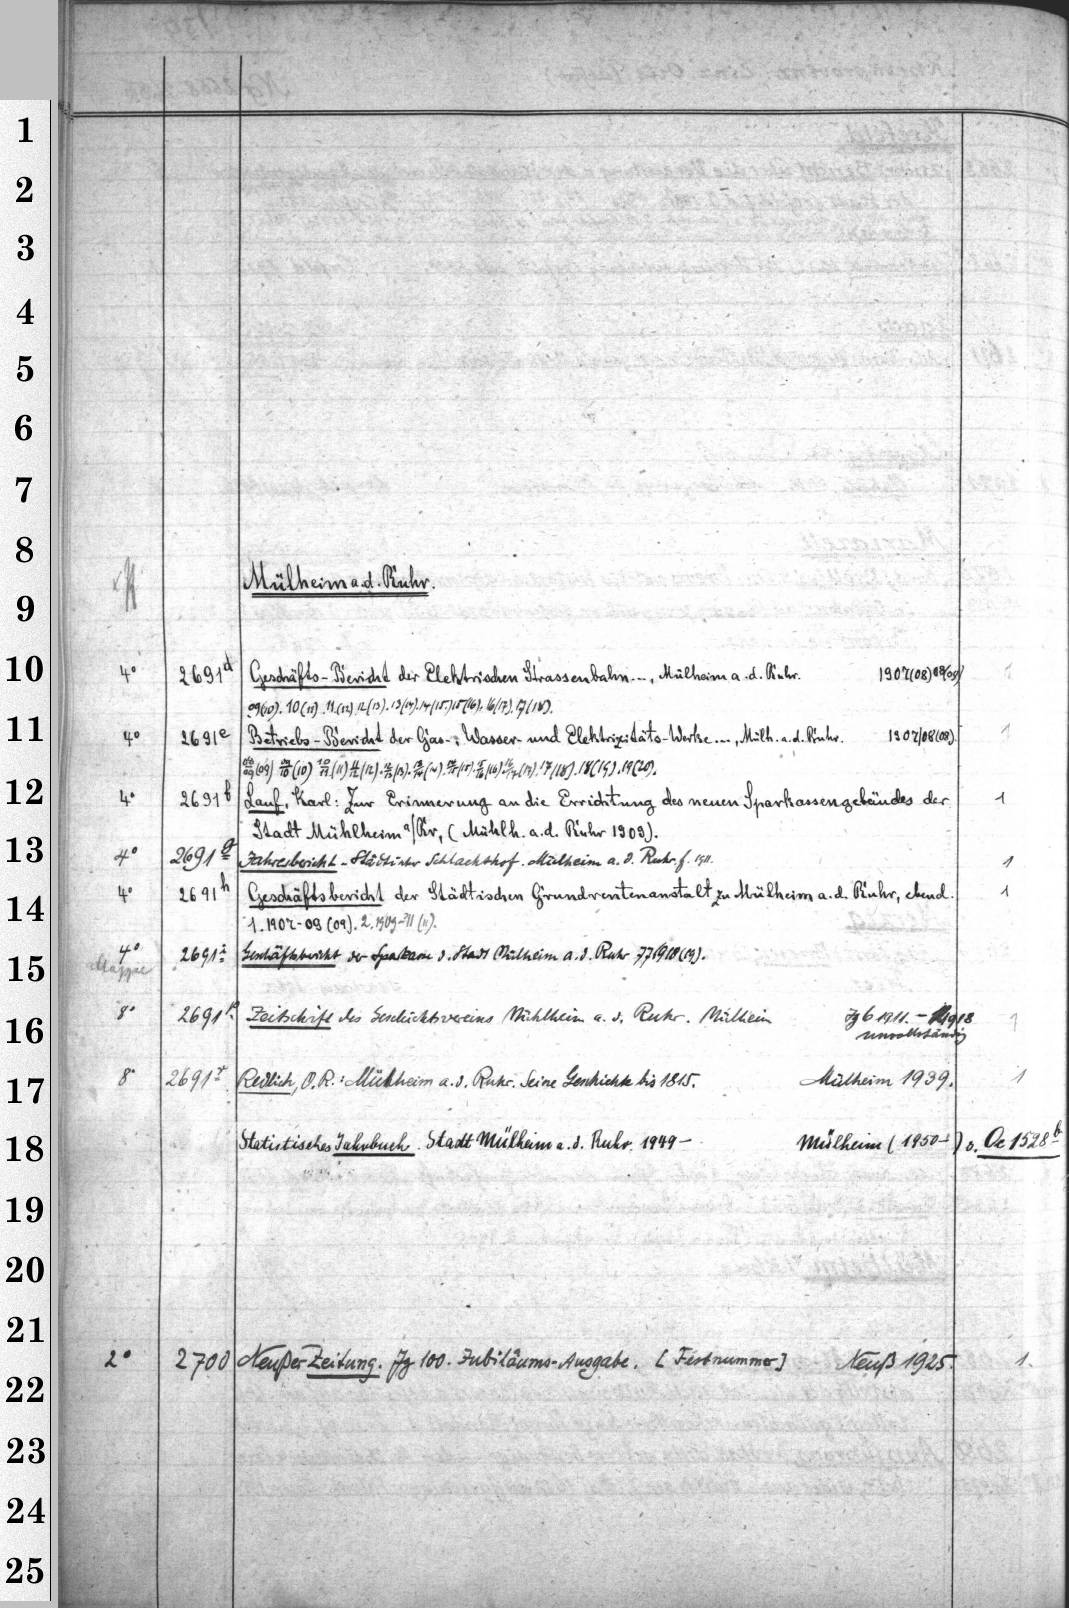 1
2
3
4
5
6
7
8
Mülheim a.d. Ruhr.
9
10 4° 2691 d Geschäfts-Bericht der Elektrischen Strassenbahn..., Mülheim a. d. Ruhr. 1907(08) 08(09)
09(10). 10(11). 11(12). 12(13). 13(14). 14(15). 15(16). 16(17). 17(18).
11 4° 2691 e Betriebs-Bericht der Gas-, Wasser- und Elektrizitäts-Werke..., Mülh. a. d. Ruhr. 1907/08(08). 1
17(18). 18(19). 19(20).
12 4° 2691 f Lauf, Karl: Zur Erinnerung an die Errichtung des neuen Sparkassengebäudes der 1
Stadt Mühlheim a/Rr, (Mühlh. a. d. Ruhr 1909).
13 4° 2691 g Jahresbericht - Städtischer Schlachthof. Mülheim a. d. Ruhr. f. 1911. 1
14 4° 2691 h Geschäftsbericht der Städtischen Grundrentenanstalt zu Mülheim a. d. Ruhr, ebend. 1
1. 1907-09 (09). 2. 1909-11 (11).
15 4° Mappe 2691 i Geschäftsbericht der Sparkasse d. Stadt Mülheim a. d. Ruhr 77. 1918(19).
16 8° 2691 Zeitschrift des Geschichtsvereins Mühlheim a. d. Ruhr. Mülheim Jg 6 1911. - 1918 1
unvollständig
17 8° 2691 Redlich, O. R.: Mülheim a. d. Ruhr. Seine Geschichte bis 1815. Mülheim 1939. 1
18 Statistisches Jahrbuch. Stadt Mülheim a. d. Ruhr. 1949- Mülheim (1950- ) s. Oc 1528 b
19
20
21
2° 2700 Neußer Zeitung. Jg 100. Jubiläums-Ausgabe. [Festnummer] Neuß 1925. 1.
22
23
24
25